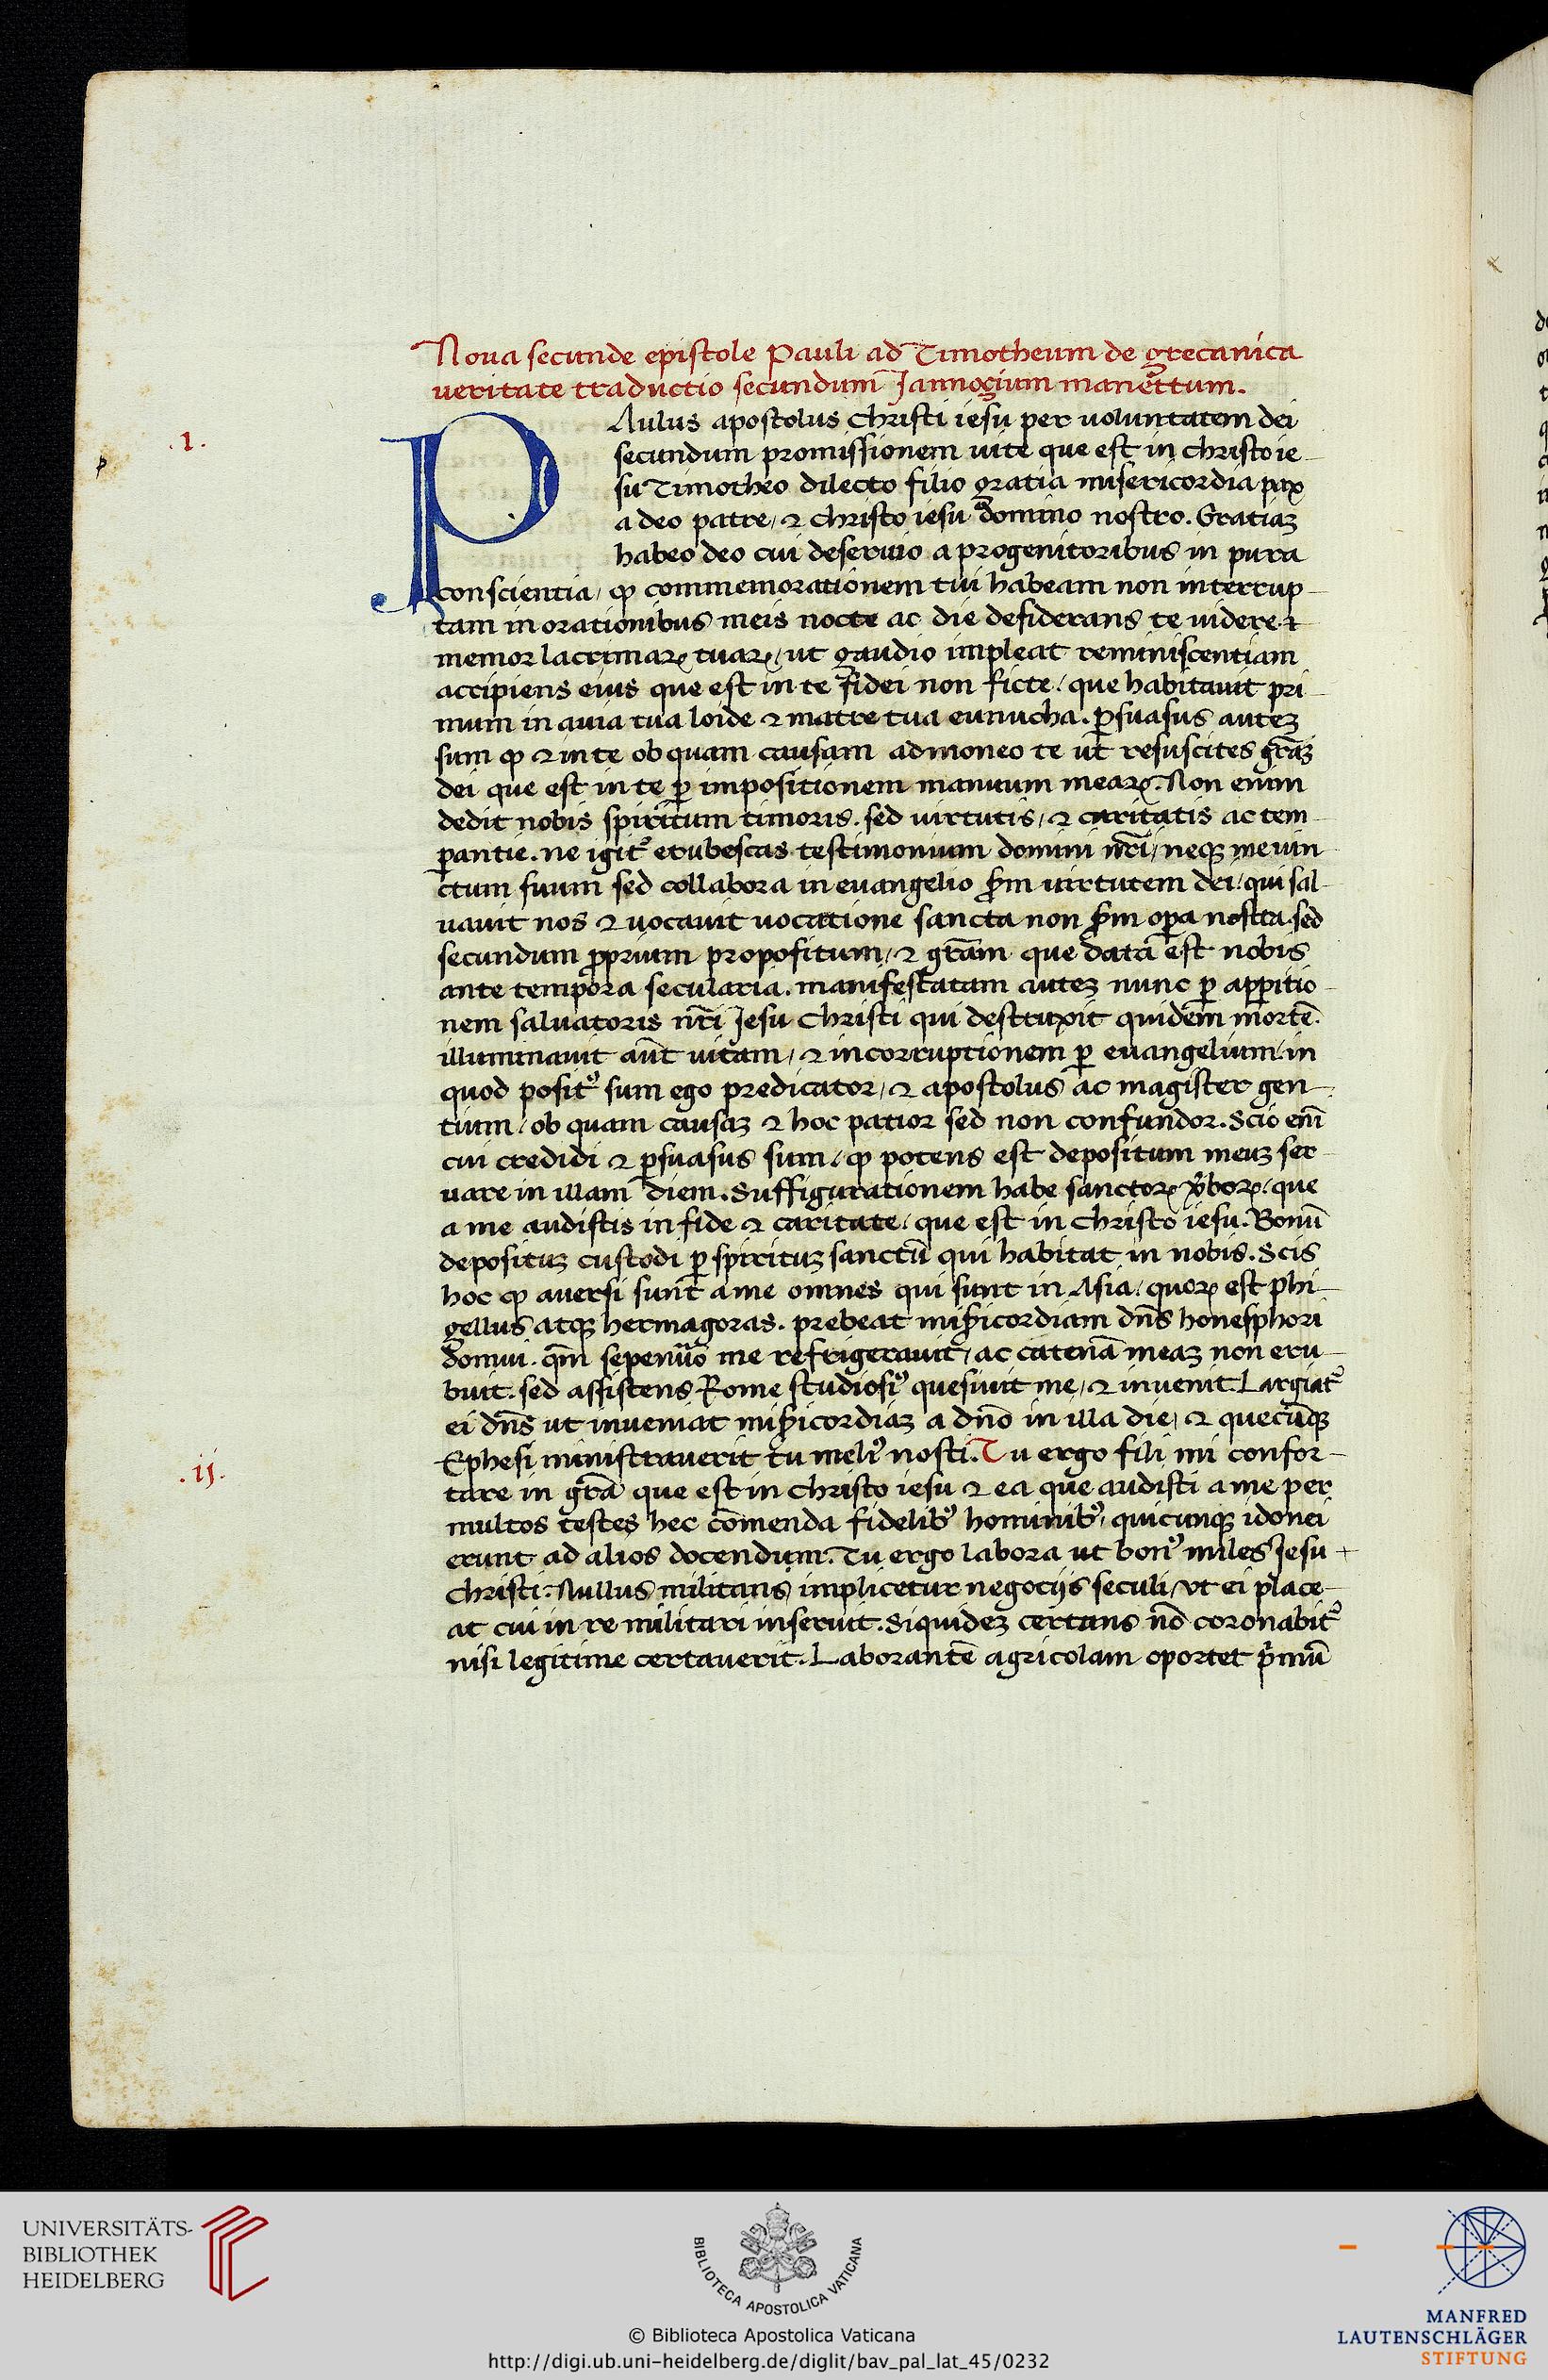 Noua secunde epistole Pauli ad Timotheum de grecanica
ueritate traductio secundum Iannogium manettum.
.1.
PAulus apostolus christi iesu per uoluntatem dei
secundum promissionem uite que est in christo ie-
su Timotheo dilecto filio gratia misericordia pax
a deo patre/ ⁊ christo iesu domino nostro. Gratiaꝫ
habeo deo cui deseruio a progenitoribus in pura
conscientia/ ꝙ commemorationem tui habeam non interrup-
tam in orationibus meis nocte ac die desiderans te uidere ⁊
memor lacrimaꝝ tuaꝝ/ ut gaudio impleat reminiscentiam
accipiens eius que est in te fidei non ficte/ que habitauit pri-
mum in auia tua loide ⁊ matre tua eunucha. ꝑsuasus auteꝫ
sum ꝙ ⁊ in te ob quam causam admoneo te ut resuscites gr̃aꝫ
dei que est in te ꝑ impositionem manuum mearꝝ. Non enim
dedit nobis spiritum timoris. sed uirtutis/ ⁊ caritatis ac tem-
ꝑantie. ne igit᷑ erubescas testimonium domini nr̃i/ neqꝫ me uin-
ctum suum sed collabora in euangelio ẜm uirtutem dei/ qui sal-
uauit nos ⁊ uocauit uocatione sancta non ẜm oꝑa nostra. sed
secundum ꝓprium propositum/ ⁊ gr̃am que data est nobis
ante tempora secularia. manifestatam auteꝫ nunc ꝑ apparitio-
nem saluatoris nr̃i Iesu Christi qui destruxit quidem mortẽ.
illuminauit aũt uitam/ ⁊ incorruptionem ꝑ euangelium/ in
quod positꝰ sum ego predicator/ ⁊ apostolus ac magister gen-
tium/ ob quam causaꝫ ⁊ hoc patior sed non confundor. Scio enĩ
cui credidi ⁊ ꝑsuasus sum/ ꝙ potens est depositum meuꝫ ser-
uare in illam diem. Suffigurationem habe sanctoꝝ ỽboꝝ/ que
a me audistis in fide ⁊ caritate/ que est in christo iesu. Bonũ
deposituꝫ custodi ꝑ spirituꝫ sanctũ qui habitat in nobis. Scis
hoc ꝙ auersi sunt a me omnes qui sunt in Asia/ quoꝝ est phi-
gellus atqꝫ hermagoras. prebeat mišicordiam dñs honesphori
domui. qm̃ sepenũo me refrigerauit/ ac catenã meaꝫ non eru-
buit. sed assistens Rome studiosiꝰ quesiuit me/ ⁊ inuenit. Largiat᷑
ei dñs ut inueniat mišicordiaꝫ a dño in illa die/ ⁊ quecũqꝫ
Ephesi ministrauerit tu meliꝰ nosti. Tu ergo fili mi confor-
.ij.
tare in gr̃a que est in christo iesu ⁊ ea que audisti a me per
multos testes hec cõmenda fidelibꝰ hominibꝰ/ quicunqꝫ idonei
erunt ad alios docendum. Tu ergo labora ut bonꝰ miles Iesu
christi. Nullus militans implicetur negocijs seculi/ ut ei place-
at cui in re militari inseruit. Siquideꝫ certans nõ coronabit᷑
nisi legitime certauerit. Laborantẽ agricolam oportet p̃mũ
UNIVERSITÄTS-
BIBLIOTHEK
HEIDELBERG
BIBLIOTECA APOSTOLICA VATICANA
© Biblioteca Apostolica Vaticana
http://digi.ub.uni-heidelberg.de/diglit/bav_pal_lat_45/0232
MANFRED
LAUTENSCHLÄGER
STIFTUNG